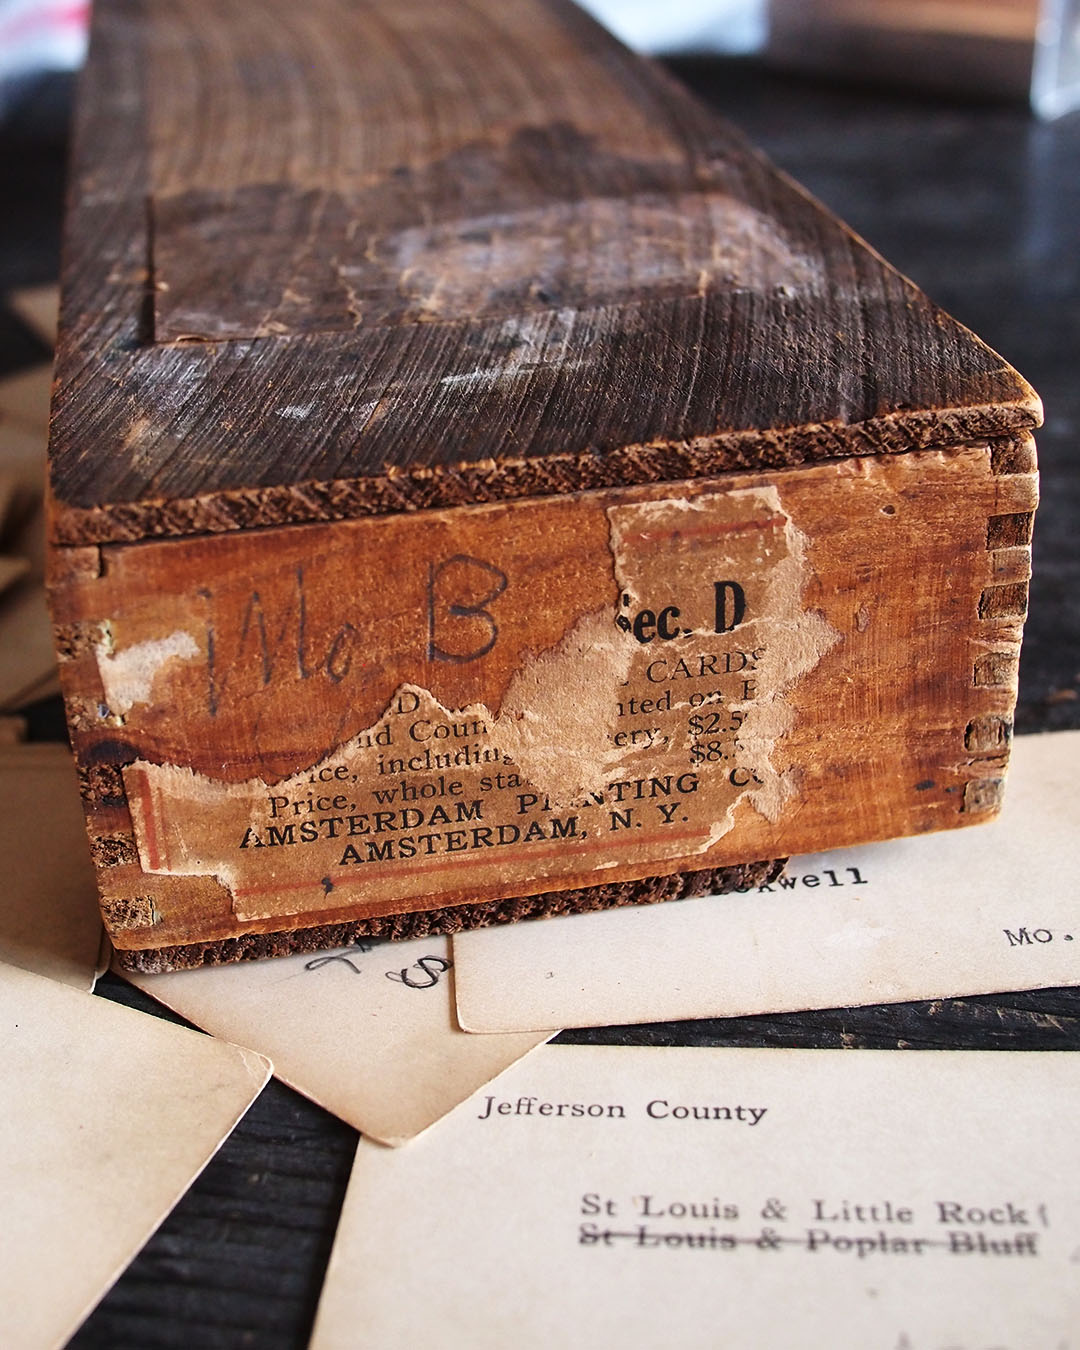 Mo. B
Sec. D
CARDS
D
nted on
nd Coun
ery, $2.5
ice, including
$8.5
Price, whole sta
AMSTERDAM PRINTING CO
AMSTERDAM, N. Y.
well
Mo.
Jefferson County
St Louis & Little Rock
St Louis & Poplar Bluff